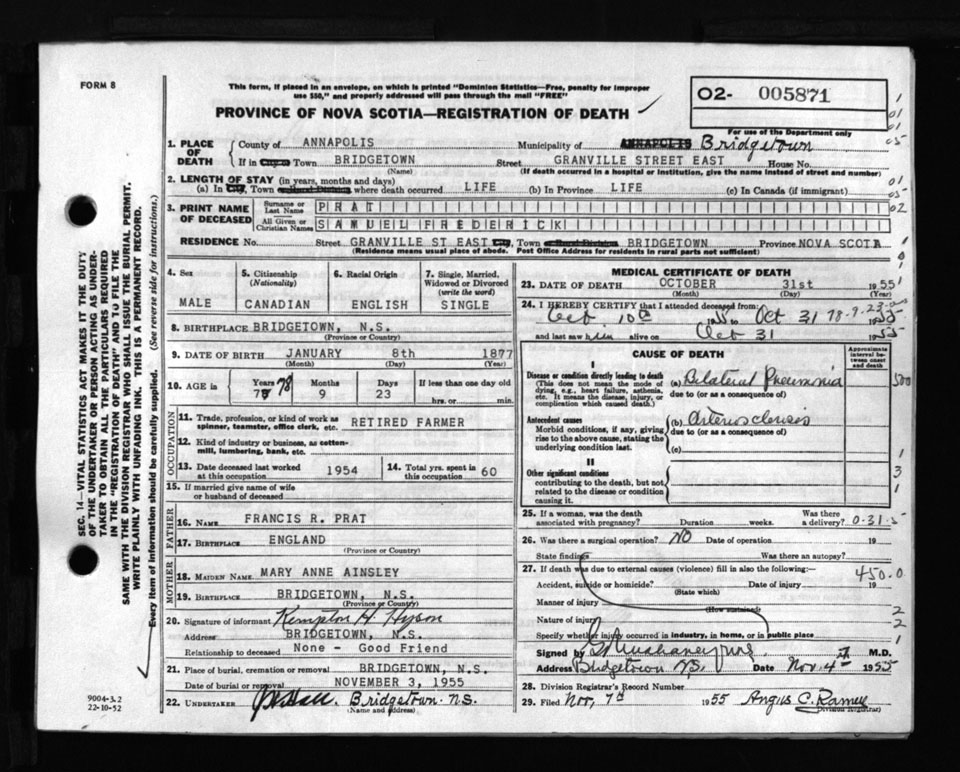 FORM 8
This form, if placed in an envelope, on which is printed "Dominion Statistics—Free, penalty for improper
use $50," and properly addressed will pass through the mail "FREE"
PROVINCE OF NOVA SCOTIA—REGISTRATION OF DEATH
02- 005871
For use of the Department only
1. PLACE OF DEATH
County of ANNAPOLIS Municipality of ANNAPOLIS Bridgetown
If in City or Town BRIDGETOWN Street GRANVILLE STREET EAST House No.
(Name) (If death occurred in a hospital or institution, give the name instead of street and number)
2. LENGTH OF STAY (in years, months and days)
(a) In City, Town where death occurred LIFE (b) In Province LIFE (c) In Canada (if immigrant)
3. PRINT NAME OF DECEASED
Surname or Last Name PRAT
All Given or Christian Names SAMUEL FREDERICK
RESIDENCE No. Street GRANVILLE ST EAST City, Town BRIDGETOWN Province NOVA SCOTIA
(Residence means usual place of abode. Post Office Address for residents in rural parts not sufficient)
4. Sex
MALE
5. Citizenship (Nationality)
CANADIAN
6. Racial Origin
ENGLISH
7. Single, Married, Widowed or Divorced (write the word)
SINGLE
8. BIRTHPLACE BRIDGETOWN, N.S.
(Province or Country)
9. DATE OF BIRTH JANUARY 8th 1877
(Month) (Day) (Year)
10. AGE in Years 78 78 Months 9 Days 23 If less than one day old
hrs. or min.
OCCUPATION
11. Trade, profession, or kind of work as spinner, teamster, office clerk, etc. RETIRED FARMER
12. Kind of industry or business, as cotton-mill, lumbering, bank, etc.
13. Date deceased last worked at this occupation 1954
14. Total yrs. spent in 60
15. If married give name of wife or husband of deceased
FATHER
16. NAME FRANCIS R. PRAT
17. BIRTHPLACE ENGLAND
(Province or Country)
MOTHER
18. MAIDEN NAME MARY ANNE AINSLEY
19. BIRTHPLACE BRIDGETOWN, N.S.
(Province or Country)
20. Signature of informant Kempton H. Hyson
Address BRIDGETOWN, N.S.
Relationship to deceased None - Good Friend
21. Place of burial, cremation or removal BRIDGETOWN, N.S.
Date of burial or removal NOVEMBER 3, 1955
22. UNDERTAKER Bridgetown. N.S.
(Name and address)
MEDICAL CERTIFICATE OF DEATH
23. DATE OF DEATH OCTOBER 31st 1955
(Month) (Day) (Year)
24. I HEREBY CERTIFY that I attended deceased from:
Oct 10th 1955 to Oct 31 1955
78-9-23
and last saw him alive on Oct 31 1955
CAUSE OF DEATH
Approximate interval between onset and death
I
Disease or condition directly leading to death
(This does not mean the mode of dying, e.g., heart failure, asthenia, etc. It means the disease, injury, or complication which caused death.)
(a) Bilateral Pneumonia
due to (or as a consequence of)
500
Antecedent causes
Morbid conditions, if any, giving rise to the above cause, stating the underlying condition last.
(b) Arteriosclerosis
due to (or as a consequence of)
(c)
II
Other significant conditions
contributing to the death, but not related to the disease or condition causing it.
25. If a woman, was the death associated with pregnancy? Duration weeks. Was there a delivery? 0-31-5
26. Was there a surgical operation? NO Date of operation 19
State findings Was there an autopsy?
27. If death was due to external causes (violence) fill in also the following: 450.0
Accident, suicide or homicide? Date of injury 19
(State which)
Manner of injury
(How sustained)
Nature of injury
Specify whether injury occurred in industry, in home, or in public place
Signed by M.D.
Address Bridgetown N.S. Date Nov. 4th 1955
28. Division Registrar's Record Number
29. Filed Nov. 7th 1955 Angus C. Ramey
(Division Registrar)
SEC. 14—VITAL STATISTICS ACT MAKES IT THE DUTY
OF THE UNDERTAKER OR PERSON ACTING AS UNDER-
TAKER TO OBTAIN ALL THE PARTICULARS REQUIRED
IN THE "REGISTRATION OF DEATH" AND TO FILE THE
SAME WITH THE DIVISION REGISTRAR WHO SHALL ISSUE THE BURIAL PERMIT.
WRITE PLAINLY WITH UNFADING INK. THIS IS A PERMANENT RECORD.
Every item of information should be carefully supplied. (See reverse side for instructions.)
9004-3.2
22-10-52